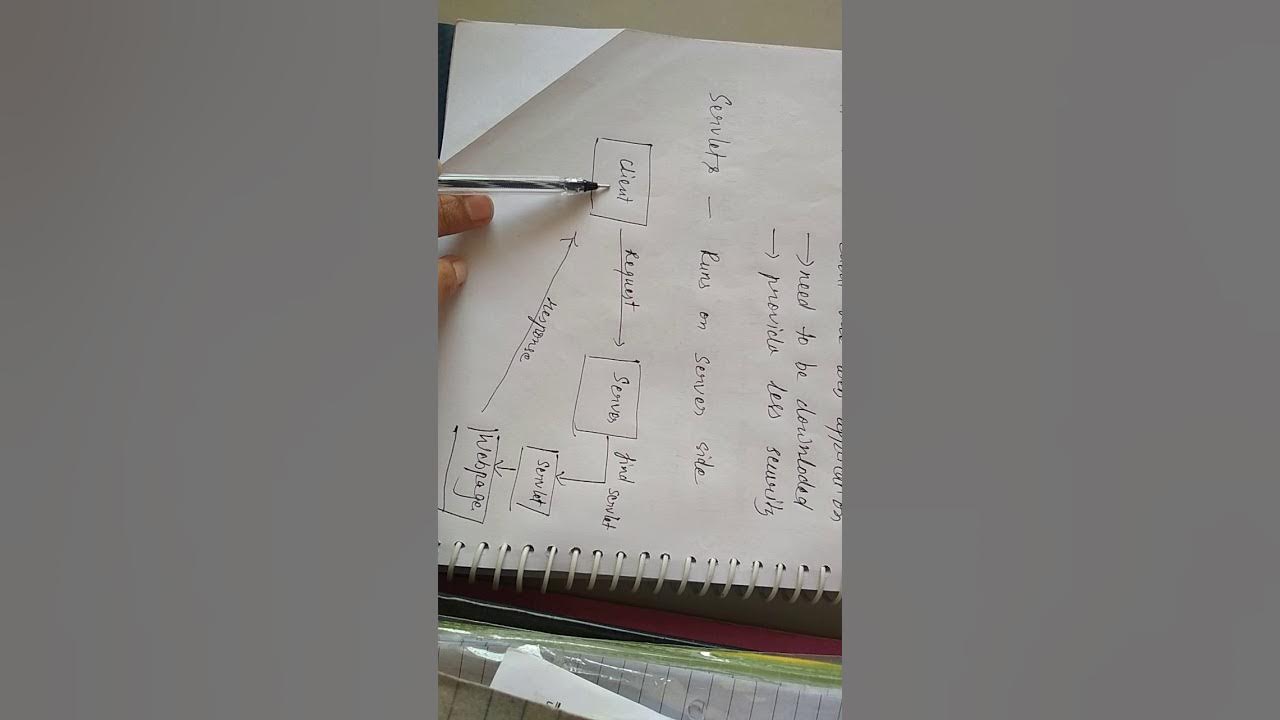 → need to be downloded
→ provide less security
Servlets — Runs on Server side
Client
Request
Server
find
servlet
Servlet
Webpage
Response